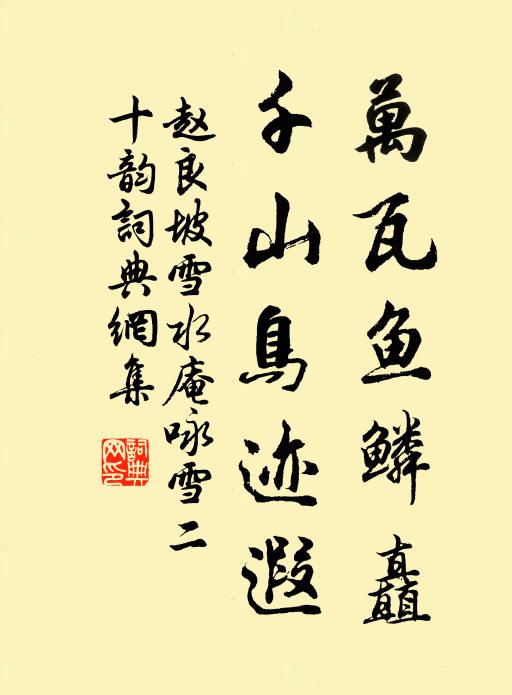 萬瓦鱼鱗矗
千山鳥迹遐
赵良坡雪水庵咏雪二
十韵詞典網集
詞典网印